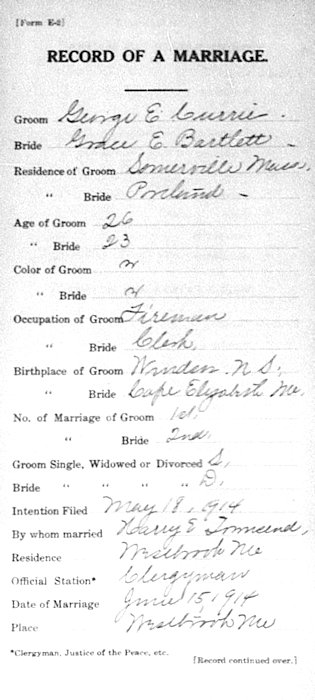 [Form E-2]
RECORD OF A MARRIAGE.
Groom George E Currie.
Bride Grace E. Bartlett
Residence of Groom Somerville Mass,
" Bride Portland
Age of Groom 26
" Bride 23
Color of Groom W
" Bride W
Occupation of Groom Fireman
" Bride Clerk,
Birthplace of Groom Windsor N S,
" Bride Cape Elizabeth Me,
No. of Marriage of Groom 1st
" Bride 2nd,
Groom Single, Widowed or Divorced S,
Bride " " " " D,
Intention Filed May 18, 1914
By whom married Harry E Townsend,
Residence Westbrook Me
Official Station* Clergyman
Date of Marriage June 15, 1914
Place Westbrook Me
*Clergyman, Justice of the Peace, etc.
[Record continued over.]